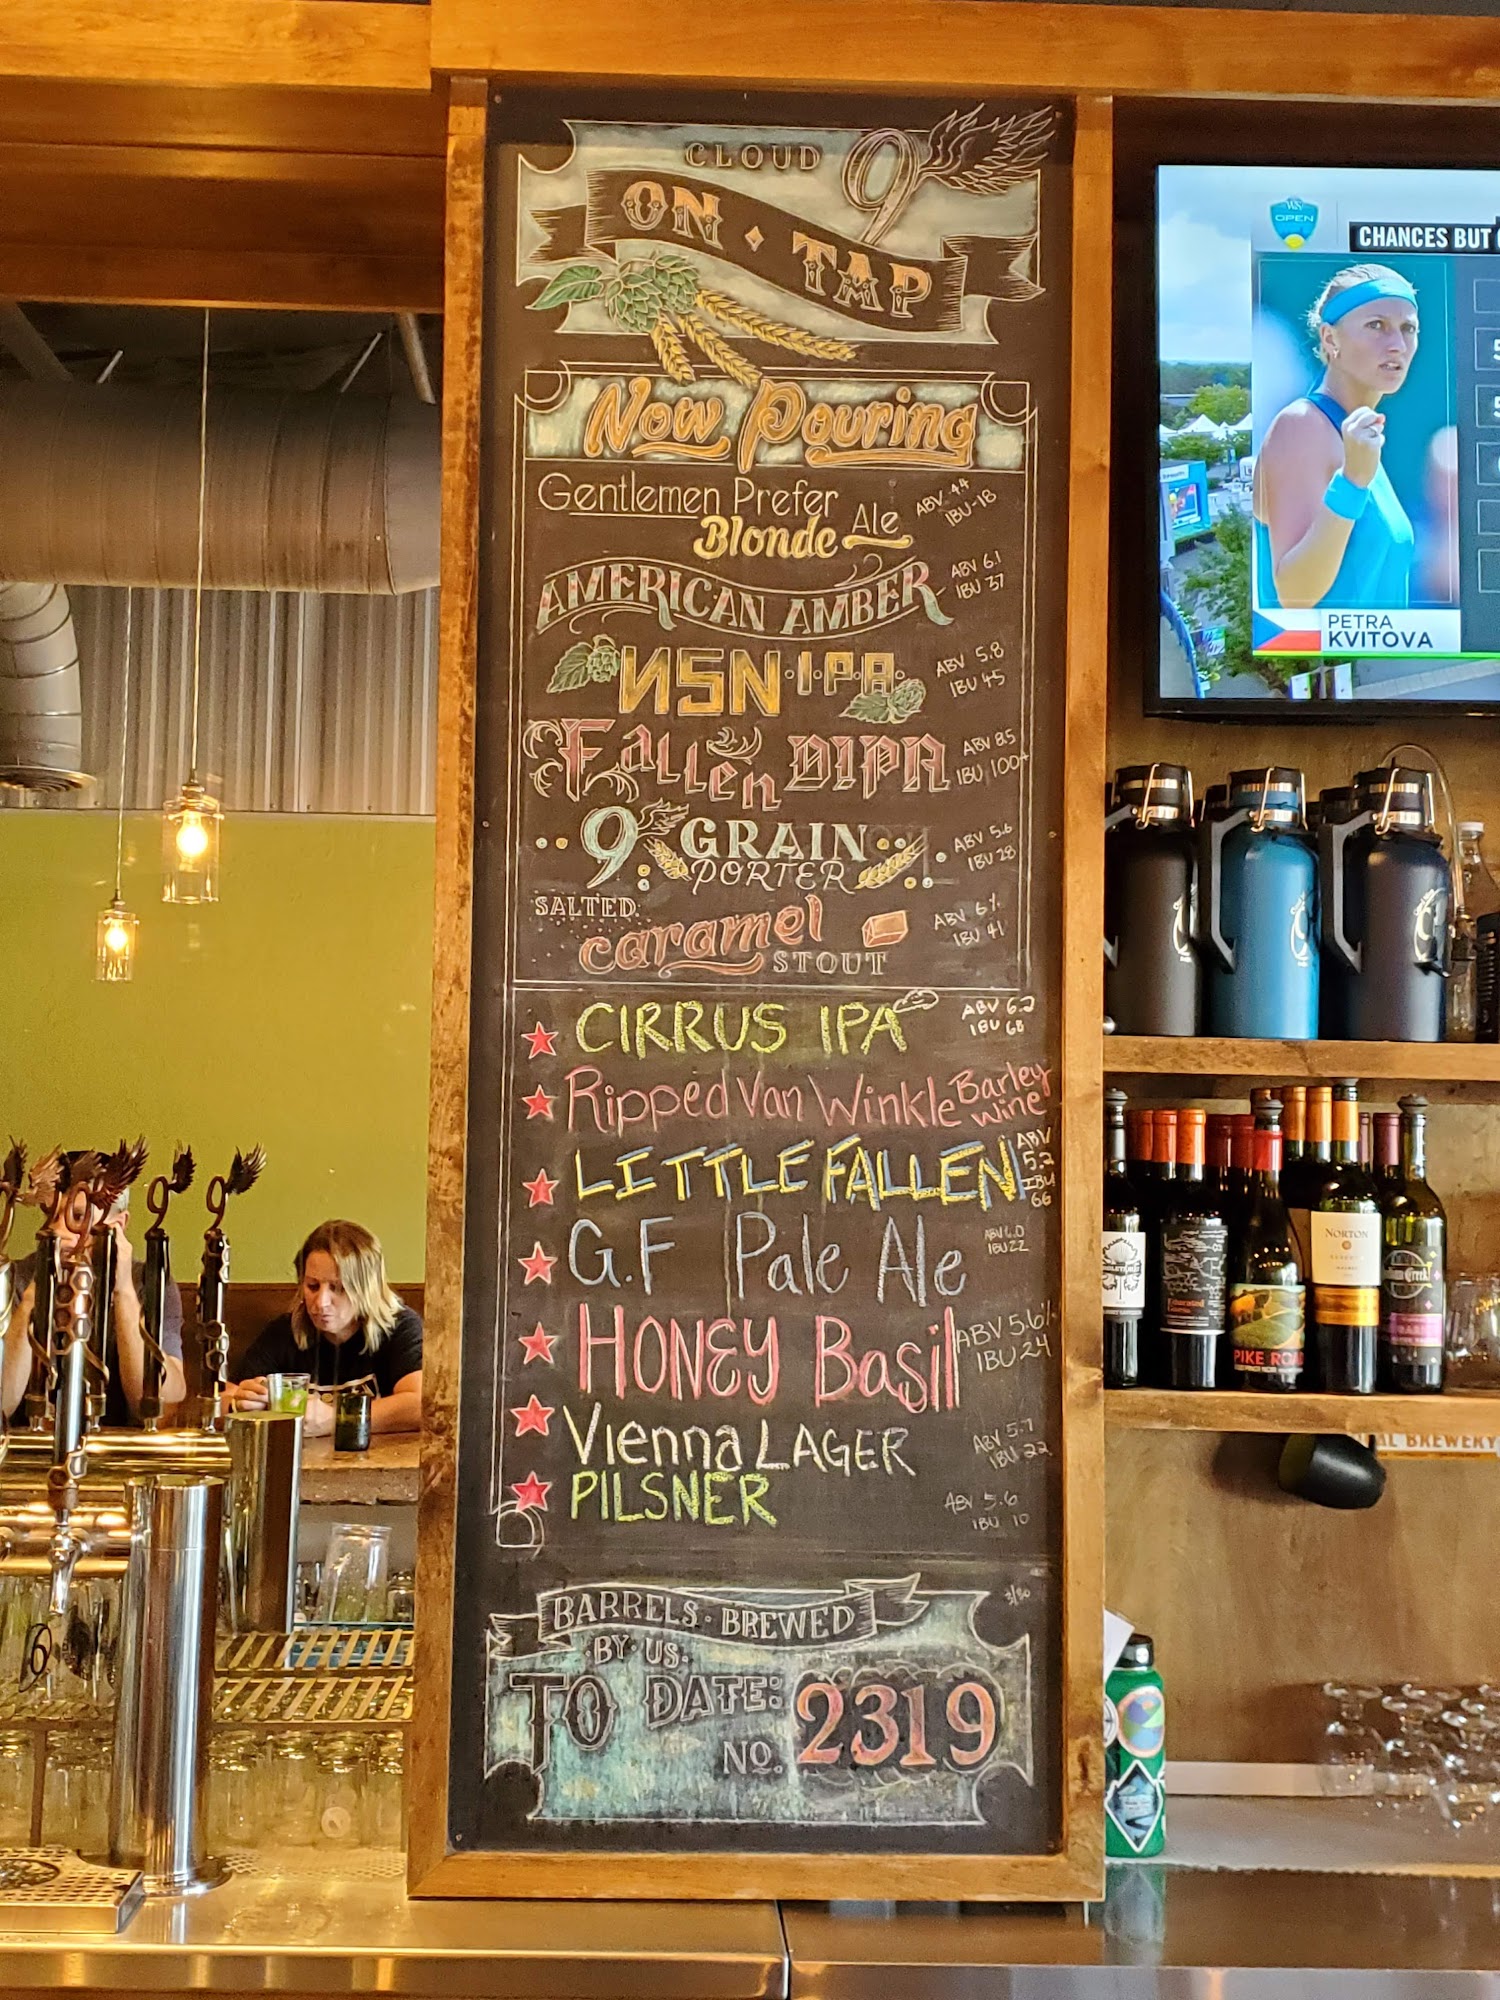 CLOUD 9
ON · TAP
Now Pouring
Gentlemen Prefer
Blonde Ale
ABV 4.4
IBU-18
AMERICAN AMBER
ABV 6.1
IBU 37
NSN·I·P·A·
ABV 5.8
IBU 45
Fallen DIPA
ABV 8.5
IBU 100+
9 GRAIN
PORTER
ABV 5.6
IBU 28
SALTED
caramel
STOUT
ABV 6%
IBU 41
CIRRUS IPA
ABV 6.2
IBU 68
Ripped Van Winkle Barley
Wine
LITTLE FALLEN
ABV
5.2
IBU
66
G.F Pale Ale
ABV 6.0
IBU 22
HONEY Basil
ABV 5.6%
IBU 24
Vienna LAGER
ABV 5.7
IBU 22
PILSNER
ABV 5.6
IBU 10
BARRELS·BREWED
·BY·US·
TO DATE:
NO. 2319
W&S
OPEN
CHANCES BUT
PETRA
KVITOVA
NORTON
PIKE ROAD
AL BREWERY